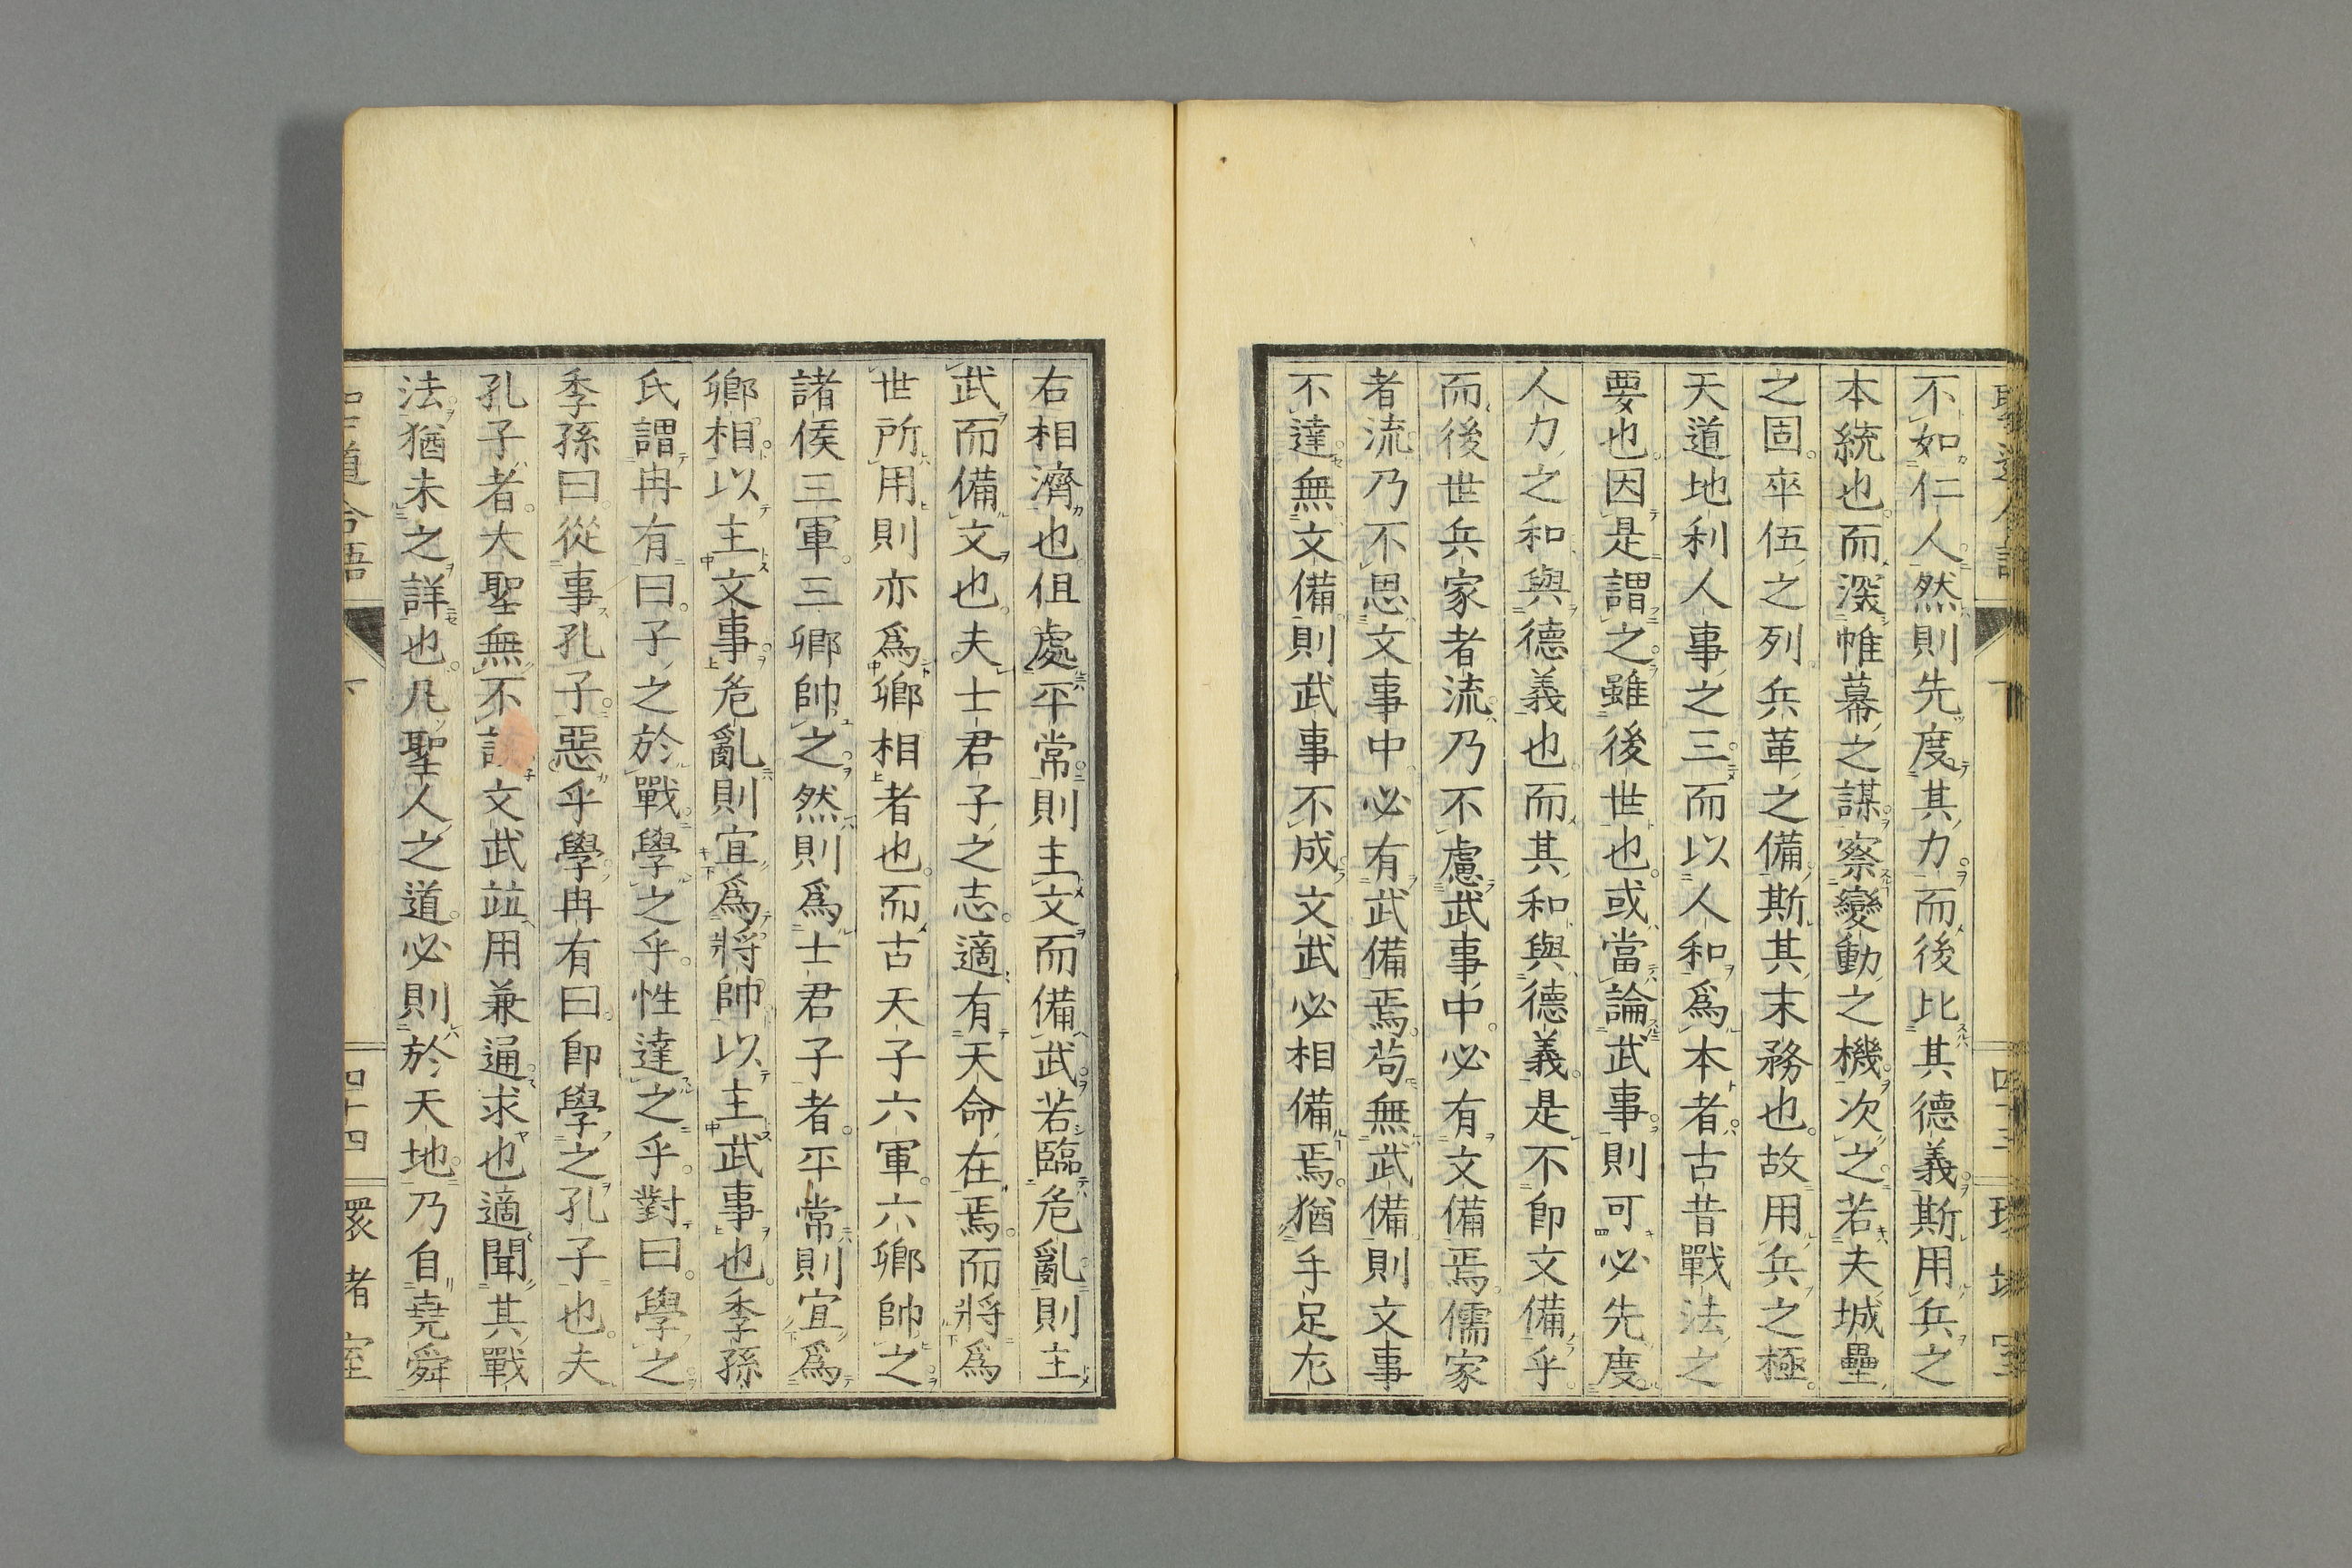 不如仁人然則先度其力而後比其德義斯用兵之
本統也而深帷幕之謀察變動之機次之若夫城壘
之固卒伍之列兵革之備斯其末務也故用兵之極
天道地利人事之三而以人和爲本者古昔戰法之
要也因是謂之雖後世也或當論武事則可必先度
人力之和與德義也而其和與德義是不卽文備乎
而後世兵家者流乃不慮武事中必有文備焉儒家
者流乃不思文事中必有武備焉苟無武備則文事
不達無文備則武事不成文武必相備焉猶手足左
右相濟也伹處平常則主文而備武若臨危亂則主
武而備文也夫士君子之志適有天命在焉而將爲
世所用則亦爲卿相者也而古天子六軍六卿帥之
諸侯三軍三卿帥之然則爲士君子者平常則宜爲
卿相以主文事危亂則宜爲將帥以主武事也季孫
氏謂冉有曰子之於戰學之乎性達之乎對曰學之
季孫曰從事孔子惡乎學冉有曰卽學之孔子也夫
孔子者大聖無不文武竝用兼通求也適聞其戰
法猶未之詳也凡聖人之道必則於天地乃自堯舜
道合語 下 四十四